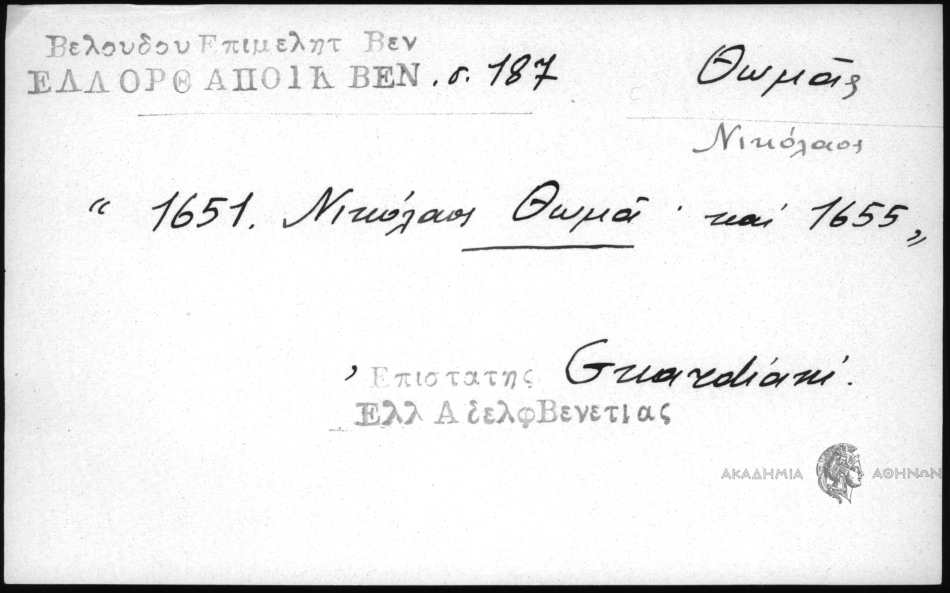 Βελουδου Επιμελητ Βεν
ΕΛΛ ΟΡΘ ΑΠΟΙΚ ΒΕΝ . σ. 187 Θωμᾶς
Νικόλαος
“ 1651. Νικόλαος Θωμᾶ · καὶ 1655 „
, Επιστατης Guardiani.
Ελλ Αδελφ Βενετιας
ΑΚΑΔΗΜΙΑ ΑΘΗΝΩΝ